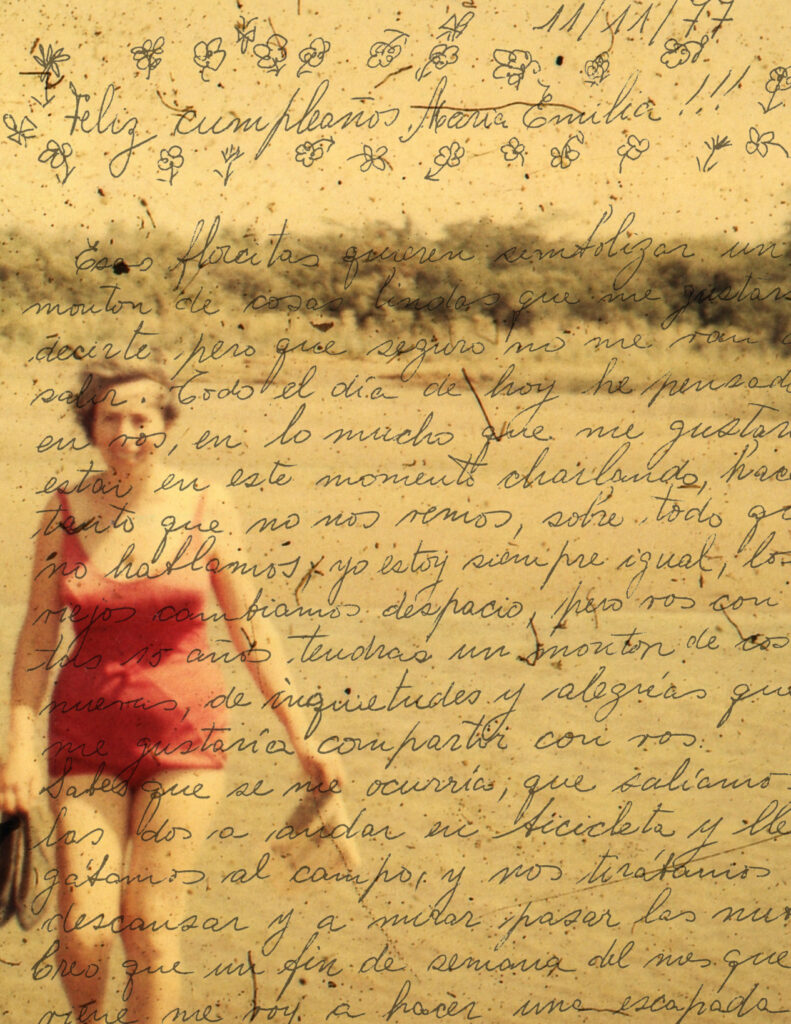 11/11/77
Feliz cumpleaños María Emilia!!!
Esas florcitas quieren simbolizar un
montón de cosas lindas que me gustar
decirte pero que seguro no me van a
salir. Todo el día de hoy he pensad
en vos, en lo mucho que me gustar
estar en este momento charlando, hace
tanto que no nos vemos, sobre todo qu
no hablamos, yo estoy siempre igual, los
viejos cambiamos despacio, pero vos con
tus 15 años tendrás un montón de cos
nuevas, de inquietudes y alegrías que
me gustaría compartir con vos.
Sabes que se me ocurría, que salíamo
las dos a andar en bicicleta y lle
gábamos al campo, y nos tirábamos
descansar y a mirar pasar las nub
Creo que un fin de semana del mes que
viene me voy a hacer una escapada